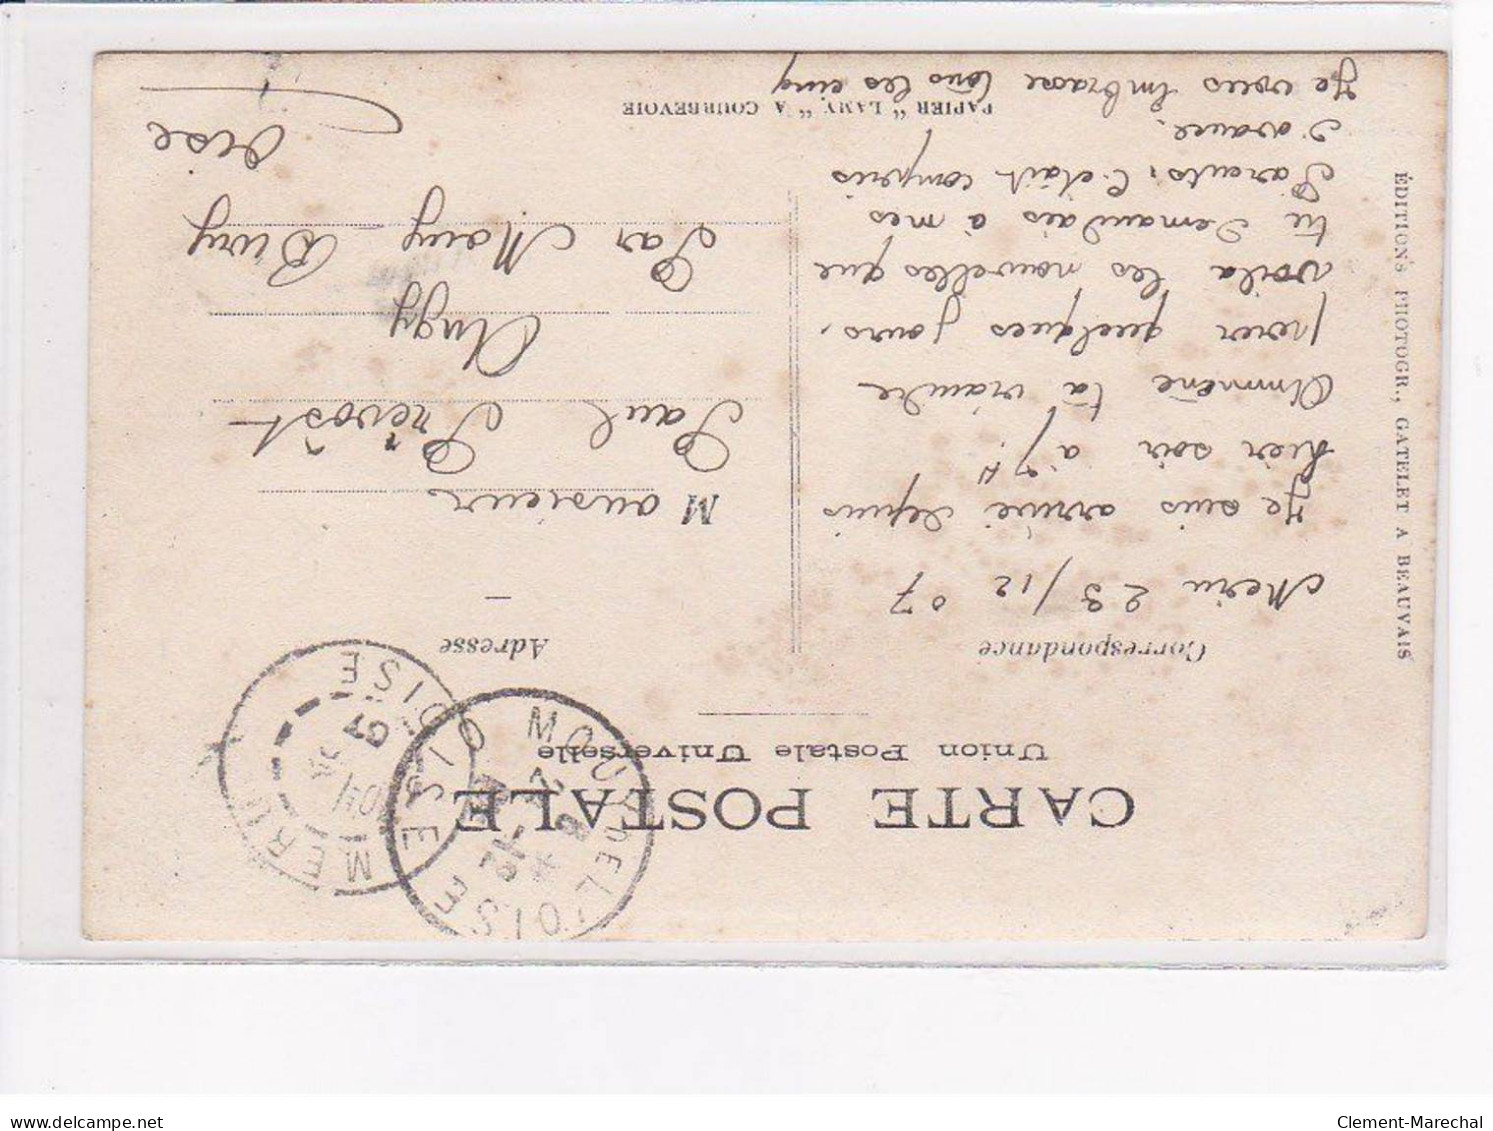 CARTE POSTALE
Union Postale Universelle
Correspondance
Méru 23/12 07
Je suis arrivé depuis
hier soir à 7H.
Ammène ta viande
pour quelques jours,
voila les nouvelles que
tu demandais à mes
Parents, c'était compris
d'avance.
Je vous Embrasse tous les cinq
Adresse
Monsieur
Paul Prévost
Angy
Par Mouy Bury
Oise
MERU
OISE
07
MOUY DE L'OISE
OISE
PAPIER "LAMY" A COURBEVOIE
ÉDITIONS PHOTOGR., GATELET A BEAUVAIS
www.delcampe.net
Clement-Marechal